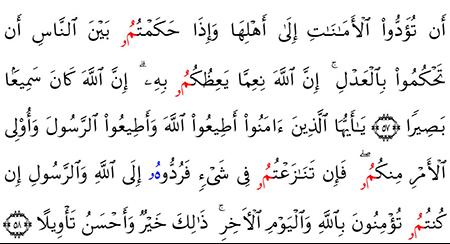 أَن تُؤَدُّوا۟ ٱلْأَمَٰنَٰتِ إِلَىٰ أَهْلِهَا وَإِذَا حَكَمْتُمُۥ بَيْنَ ٱلنَّاسِ أَن
تَحْكُمُوا۟ بِٱلْعَدْلِ ۚ إِنَّ ٱللَّهَ نِعِمَّا يَعِظُكُمُۥ بِهِۦٓ ۗ إِنَّ ٱللَّهَ كَانَ سَمِيعَۢا
بَصِيرًا ۝٥٧ يَٰٓأَيُّهَا ٱلَّذِينَ ءَامَنُوٓا۟ أَطِيعُوا۟ ٱللَّهَ وَأَطِيعُوا۟ ٱلرَّسُولَ وَأُو۟لِى
ٱلْأَمْرِ مِنكُمُۥ ۖ فَإِن تَنَٰزَعْتُمُۥ فِى شَىْءٍ فَرُدُّوهُۥ إِلَى ٱللَّهِ وَٱلرَّسُولِ إِن
كُنتُمُۥ تُؤْمِنُونَ بِٱللَّهِ وَٱلْيَوْمِ ٱلْأَخِرِ ۚ ذَٰلِكَ خَيْرٌ وَأَحْسَنُ تَأْوِيلًا ۝٥٨